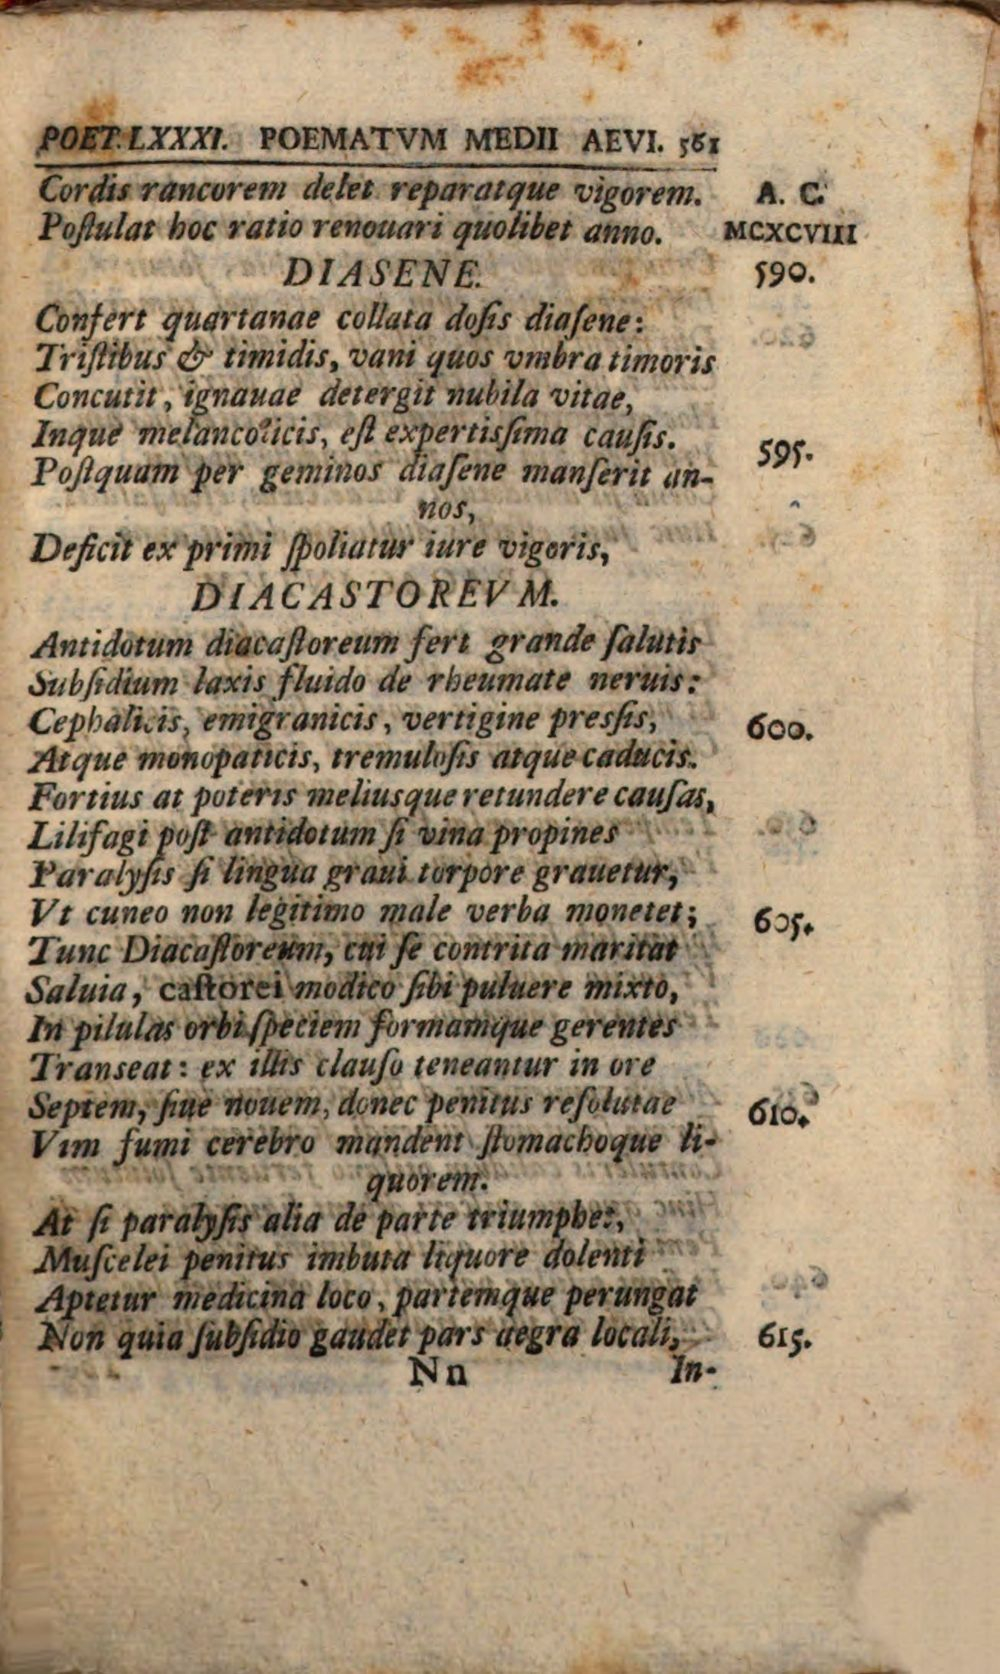 POET. LXXXI. POEMATVM MEDII AEVI. 561
Cordis rancorem delet reparatque vigorem. A. C.
Poſtulat hoc ratio renouari quolibet anno. MCXCVIII
DIASENE. 590.
Confert quartanae collata doſis diaſene:
Triſtibus & timidis, vani quos vmbra timoris
Concutit, ignauae detergit nubila vitae,
Inque melancolicis, eſt expertisſima cauſis. 595.
Poſtquam per geminos diaſene manſerit an-
nos,
Deficit ex primi ſpoliatur iure vigoris,
DIACASTOREVM.
Antidotum diacaſtoreum fert grande ſalutis
Subſidium laxis fluido de rheumate neruis:
Cephalicis, emigranicis, vertigine presſis, 600.
Atque monopaticis, tremuloſis atque caducis.
Fortius at poteris meliusque retundere cauſas,
Lilifagi poſt antidotum ſi vina propines
Paralyſis ſi lingua graui torpore grauetur,
Vt cuneo non legitimo male verba monetet; 605.
Tunc Diacaſtoreum, cui ſe contrita maritat
Saluia, caſtorei modico ſibi puluere mixto,
In pilulas orbi ſpeciem formamque gerentes
Transeat: ex illis clauſo teneantur in ore
Septem, ſiue nouem, donec penitus reſolutae 610.
Vim fumi cerebro mandent ſtomachoque li-
quorem.
At ſi paralyſis alia de parte triumphet,
Muſcelei penitus imbuta liquore dolenti
Aptetur medicina loco, partemque perungat
Non quia ſubſidio gaudet pars aegra locali, 615.
Nn In-